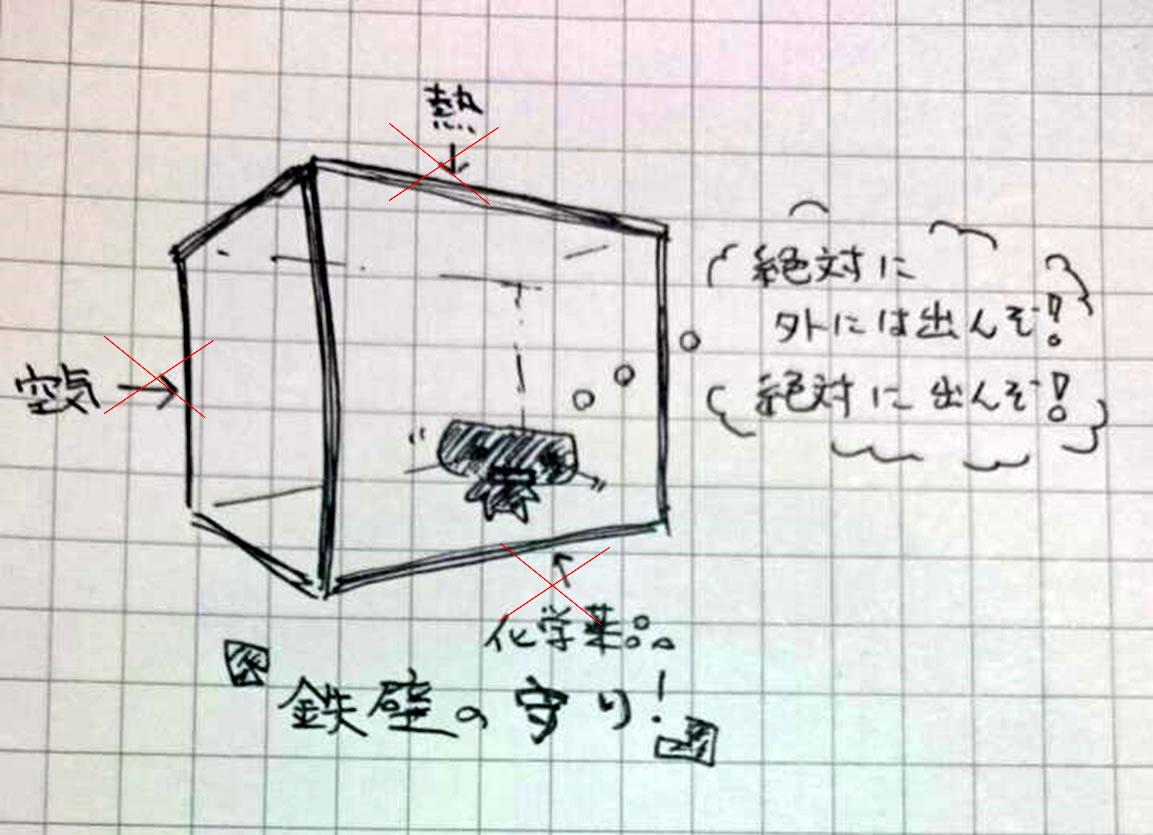 熱
空気
絶対に
外には出んぞ!
絶対に出んぞ!
化学薬品
『鉄壁の守り!』